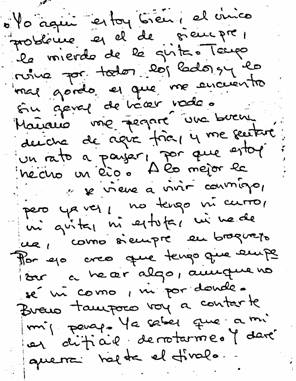 Yo aquí estoy bien, el único
problema es el de siempre,
la mierda de la guita. Tengo
ruina por todos los lados, y lo
mas gordo, es que me encuentro
sin ganas de hacer nada.
Mañana me pegaré una buena
ducha de agua fria, y me sentaré
un rato a pensar, por que estoy
hecho un lio. A lo mejor la
se viene a vivir conmigo,
pero ya ves, no tengo ni curro,
ni guita, ni estufa, ni na de
na, como siempre en
Por eso creo que tengo que empe
zar a hacer algo, aunque no
sé ni como, ni por donde.
Bueno tampoco voy a contarte
mis penas. Ya sabes que a mi
es dificil derrotarme. Y daré
guerra hasta el final.